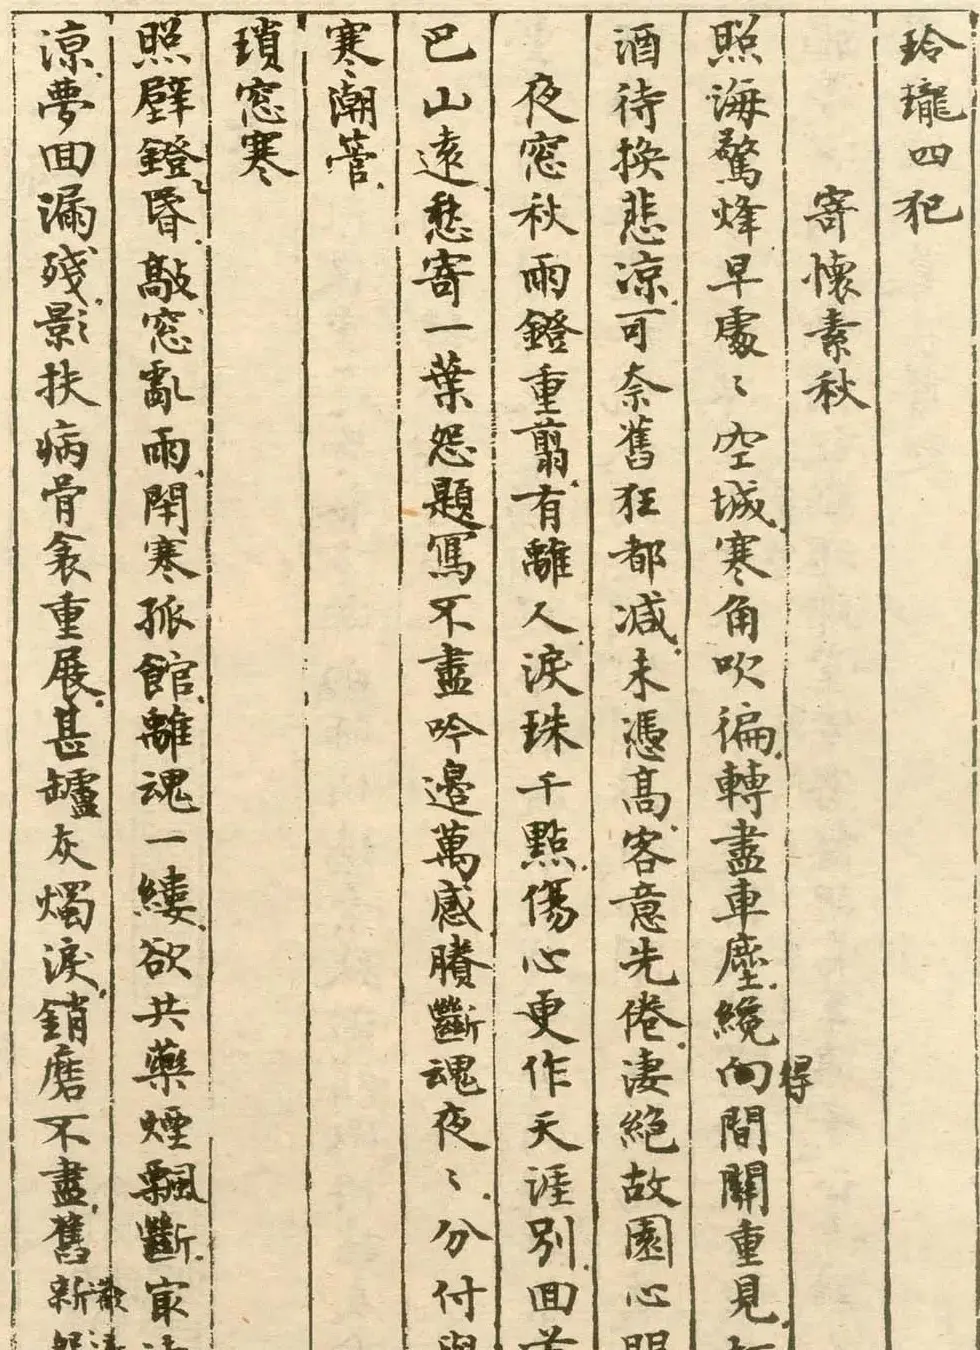 玲瓏四犯
寄懷素秋
照海驚烽早處〻空城寒角吹徧轉盡車塵纔向得間關重見
酒待換悲涼可奈舊狂都減未憑高客意先倦淒絕故園心眼
夜窓秋雨鐙重翦有離人淚珠千點傷心更作天涯別回首
巴山遠愁寄一葉怨題寫不盡吟邊萬感賸斷魂夜〻分付與
寒潮管
瑣窓寒
照壁鐙昏敲窓亂雨閉寒孤館離魂一縷欲共藥煙飄斷寂
涼夢回漏殘影扶病骨衾重展甚罏灰燭淚銷磨不盡舊新